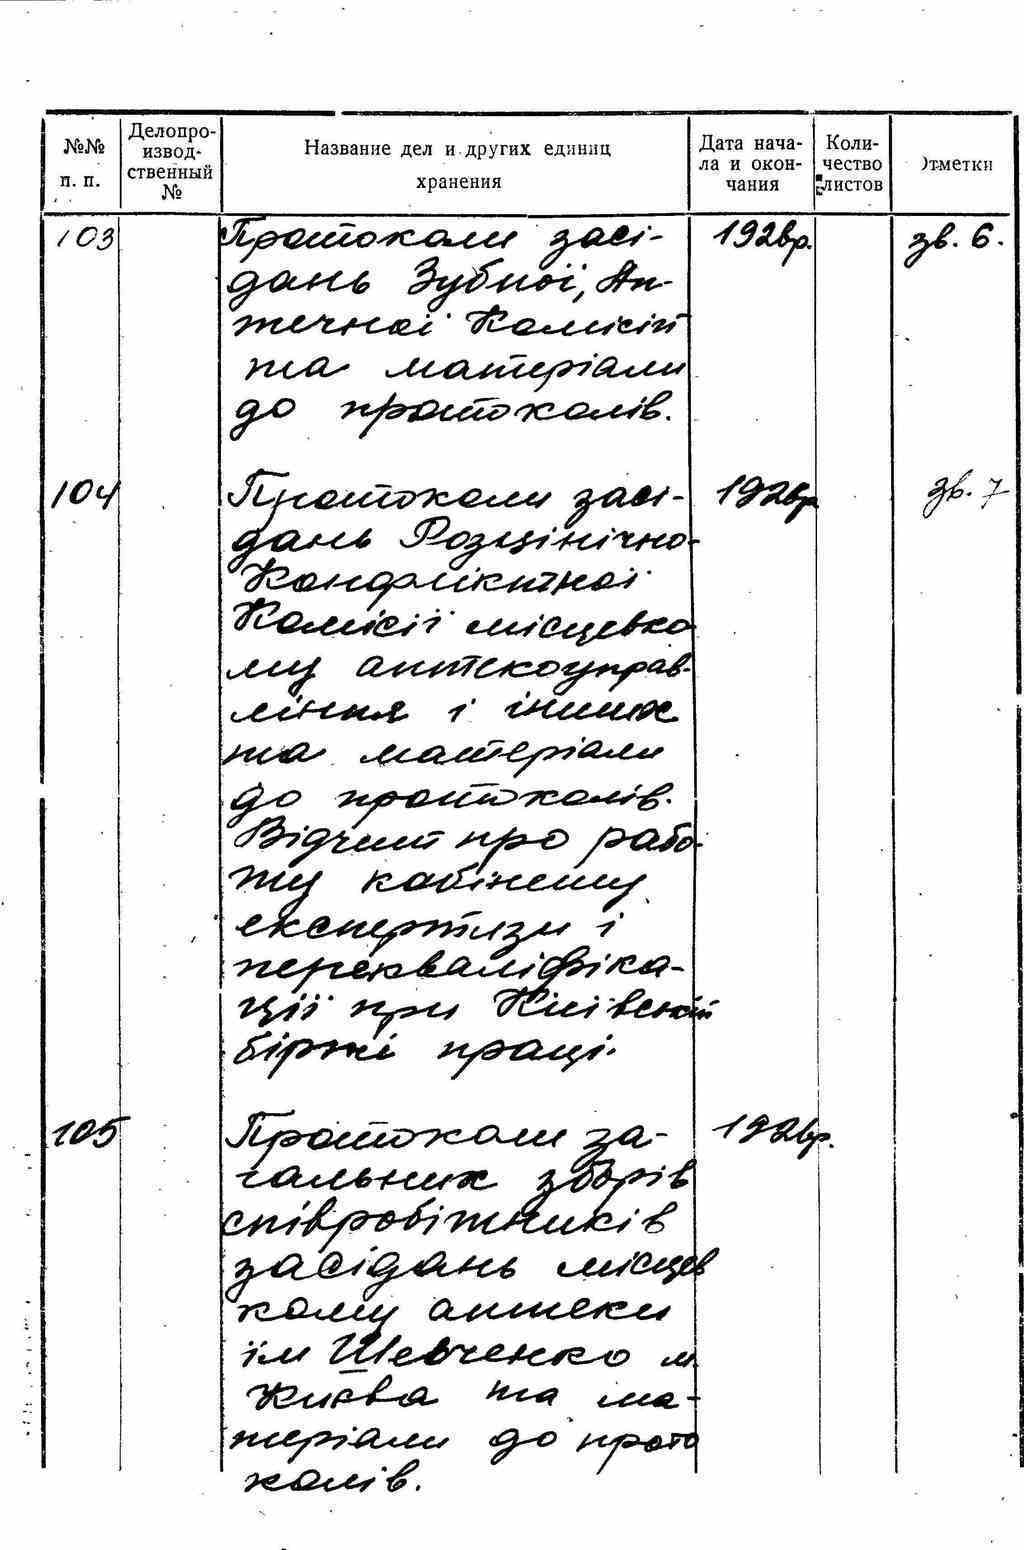 №№ п. п.
Делопроизводственный №
Название дел и других единиц хранения
Дата начала и окончания
Количество листов
Отметки
103 Протоколи засі- 192 р. зв. 6.
дань Зубної, Ап-
течної Комісій
та матеріали
до протоколів.
104 Протоколи засі- 192 р зв. 7
дань Розцінічно-
Конфліктної
Комісії місцевко
му аптекоуправ-
ління і інших
та матеріали
до протоколів.
Відчит про рабо-
ту кабінету
експертизи і
перекваліфіка-
ції при Київській
біржі праці.
105 Протоколи за- 192 р.
гальних зборів
співробітників
засідань місцев
кому аптеки
ім Шевченко м
Києва та ма-
теріали до прото
колів.